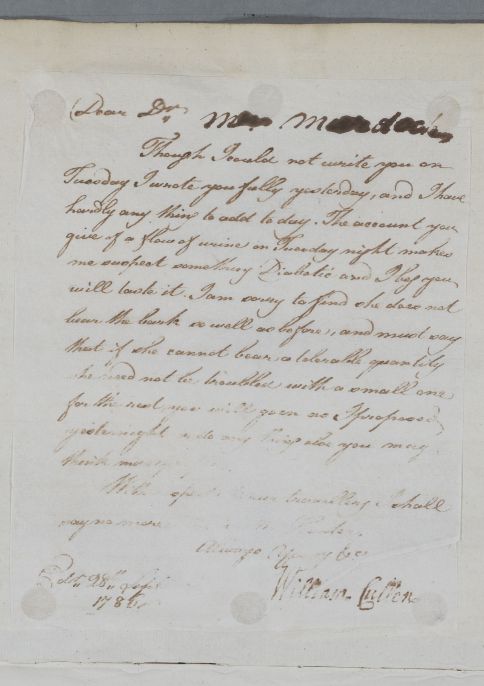 Dear Dr.
Though I could not write you on
Tuesday I wrote you fully yesterday, and I have
hardly any thing to add to day. The account you
give of a flow of urine on Tuesday night makes
me suspect something Diabetic and I beg you
will taste it. I am sorry to find she does not
bear the bark so well as before, and must say
that if she cannot bear a tolerable quantity
she need not be troubled with a small one
for the rest, you will go on as I proposed
yesternight do any thing else you may
think
With travelling I shall
say no more
always Yours &c
William Cullen
Edr. 28th
178